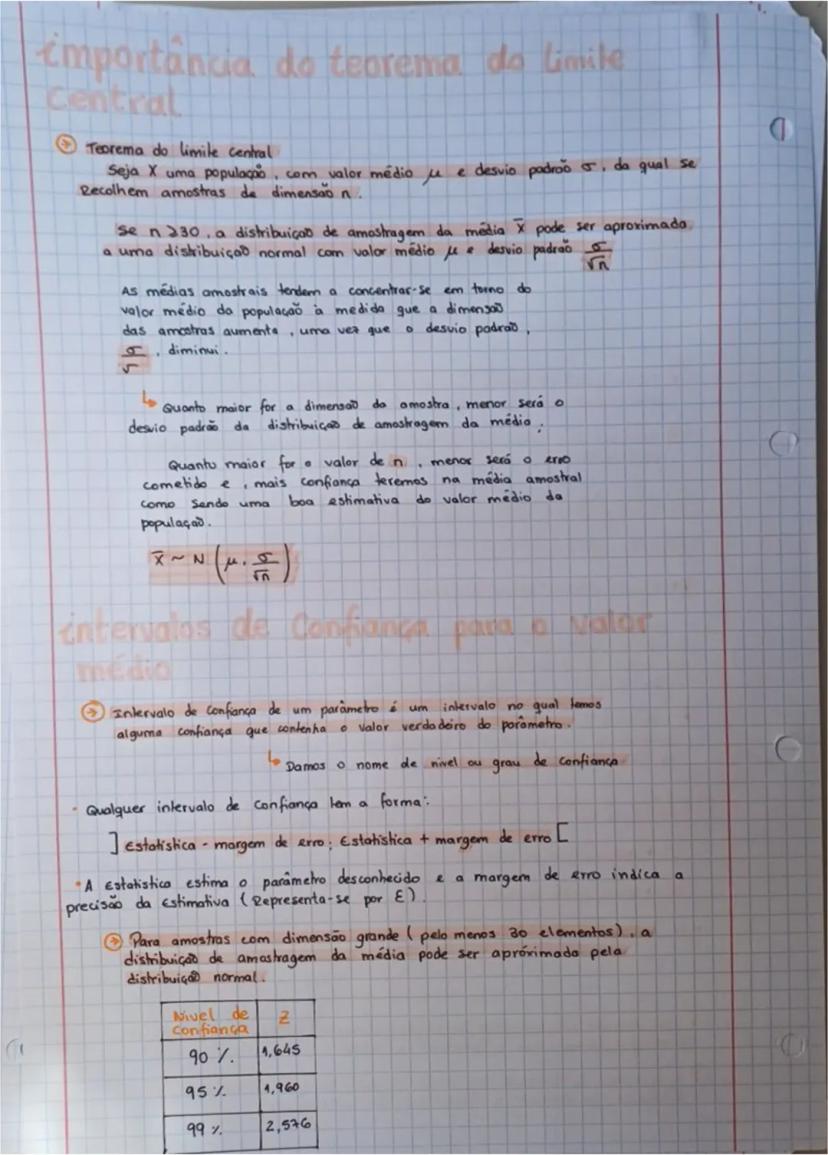 importância do teorema do limite
central
Teorema do limite central
Seja X uma população, com valor médio μ e desvio padrão σ, da qual se
Recolhem amostras de dimensão n.
Se n ≥30, a distribuição de amostragem da média x̄ pode ser aproximada
a uma distribuição normal com valor médio μ e desvio padrão σ/√n
As médias amostrais tendem a concentrar-se em torno do
valor médio da população à medida que a dimensão
das amostras aumenta, uma vez que o desvio padrão,
σ/√, diminui.
Quanto maior for a dimensão da amostra, menor será o
desvio padrão da distribuição de amostragem da média;
Quanto maior for o valor de n, menor será o erro
cometido e, mais confiança teremos na média amostral
como sendo uma boa estimativa do valor médio da
população.
x̄ ~ N (μ, σ/√n)
intervalos de Confiança para o valor
médio
Intervalo de confiança de um parâmetro é um intervalo no qual temos
alguma confiança que contenha o valor verdadeiro do parâmetro.
Damos o nome de nível ou grau de confiança
• Qualquer intervalo de confiança tem a forma:
] Estatística - margem de erro; Estatística + margem de erro [
• A Estatística estima o parâmetro desconhecido e a margem de erro indica a
precisão da Estimativa (Representa-se por ε).
Para amostras com dimensão grande (pelo menos 30 elementos), a
distribuição de amostragem da média pode ser apróximada pela
distribuição normal.
Nível de Confiança Z
90 % 1,645
95 % 1,960
99 % 2,576